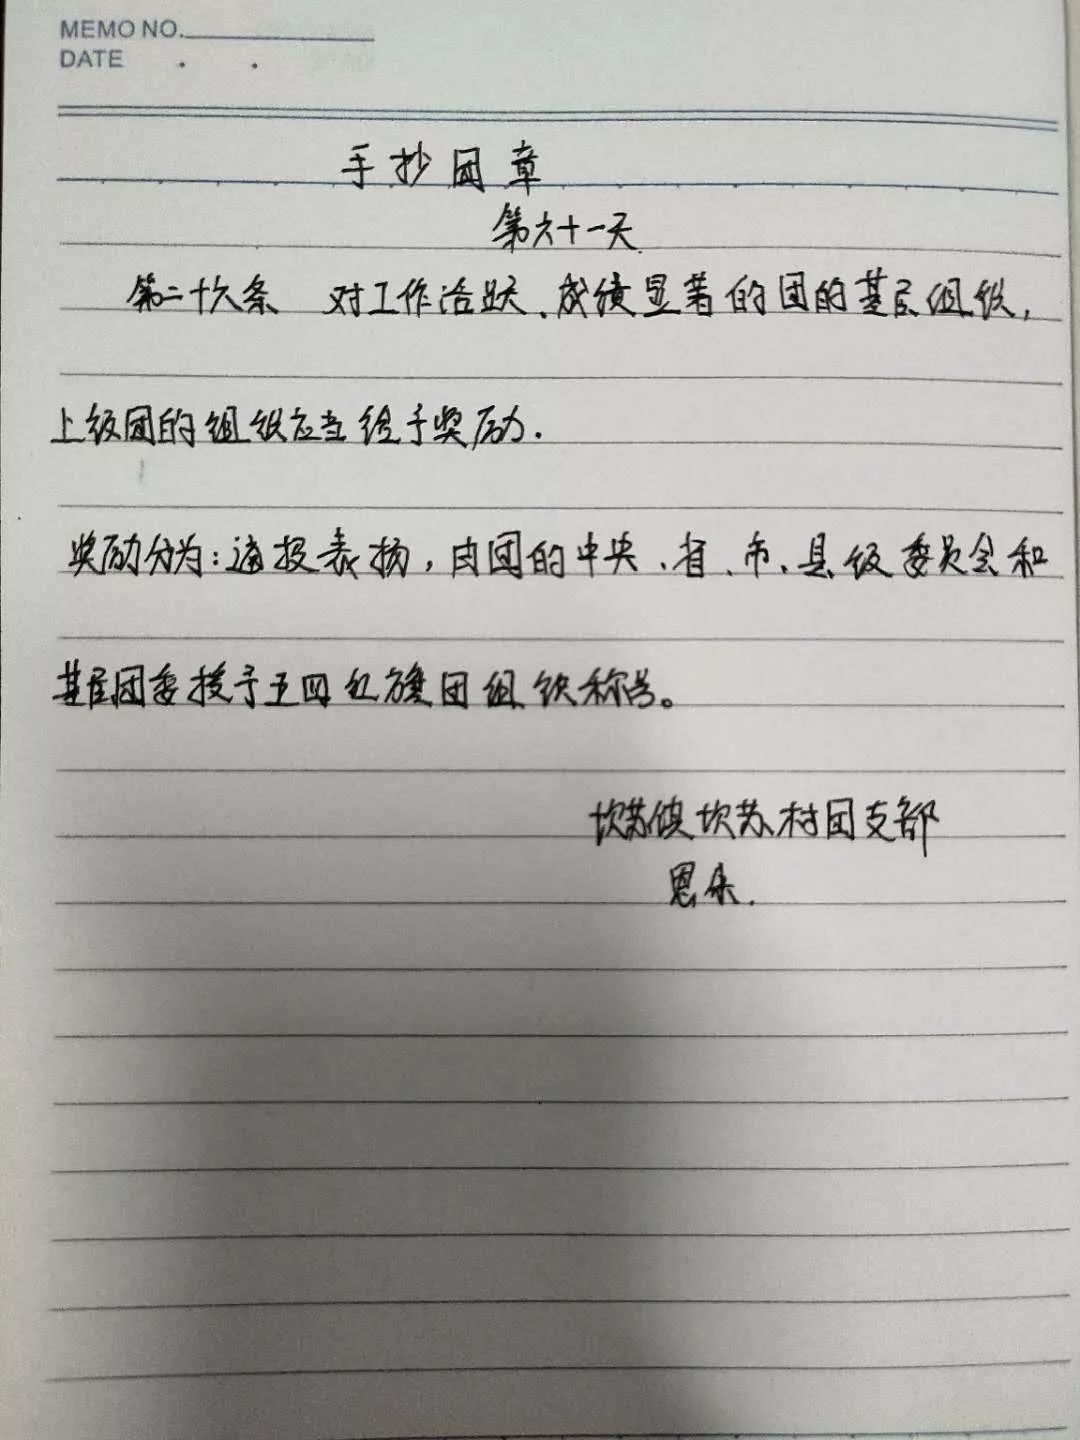 MEMO NO.
DATE . .
手抄团章
第六十一天
第二十六条 对工作活跃、成绩显著的团的基层组织,
上级团的组织应当给予奖励.
奖励分为:通报表扬,由团的中央、省、市、县级委员会和
基层团委授予五四红旗团组织称号。
坎苏镇坎苏村团支部
恩